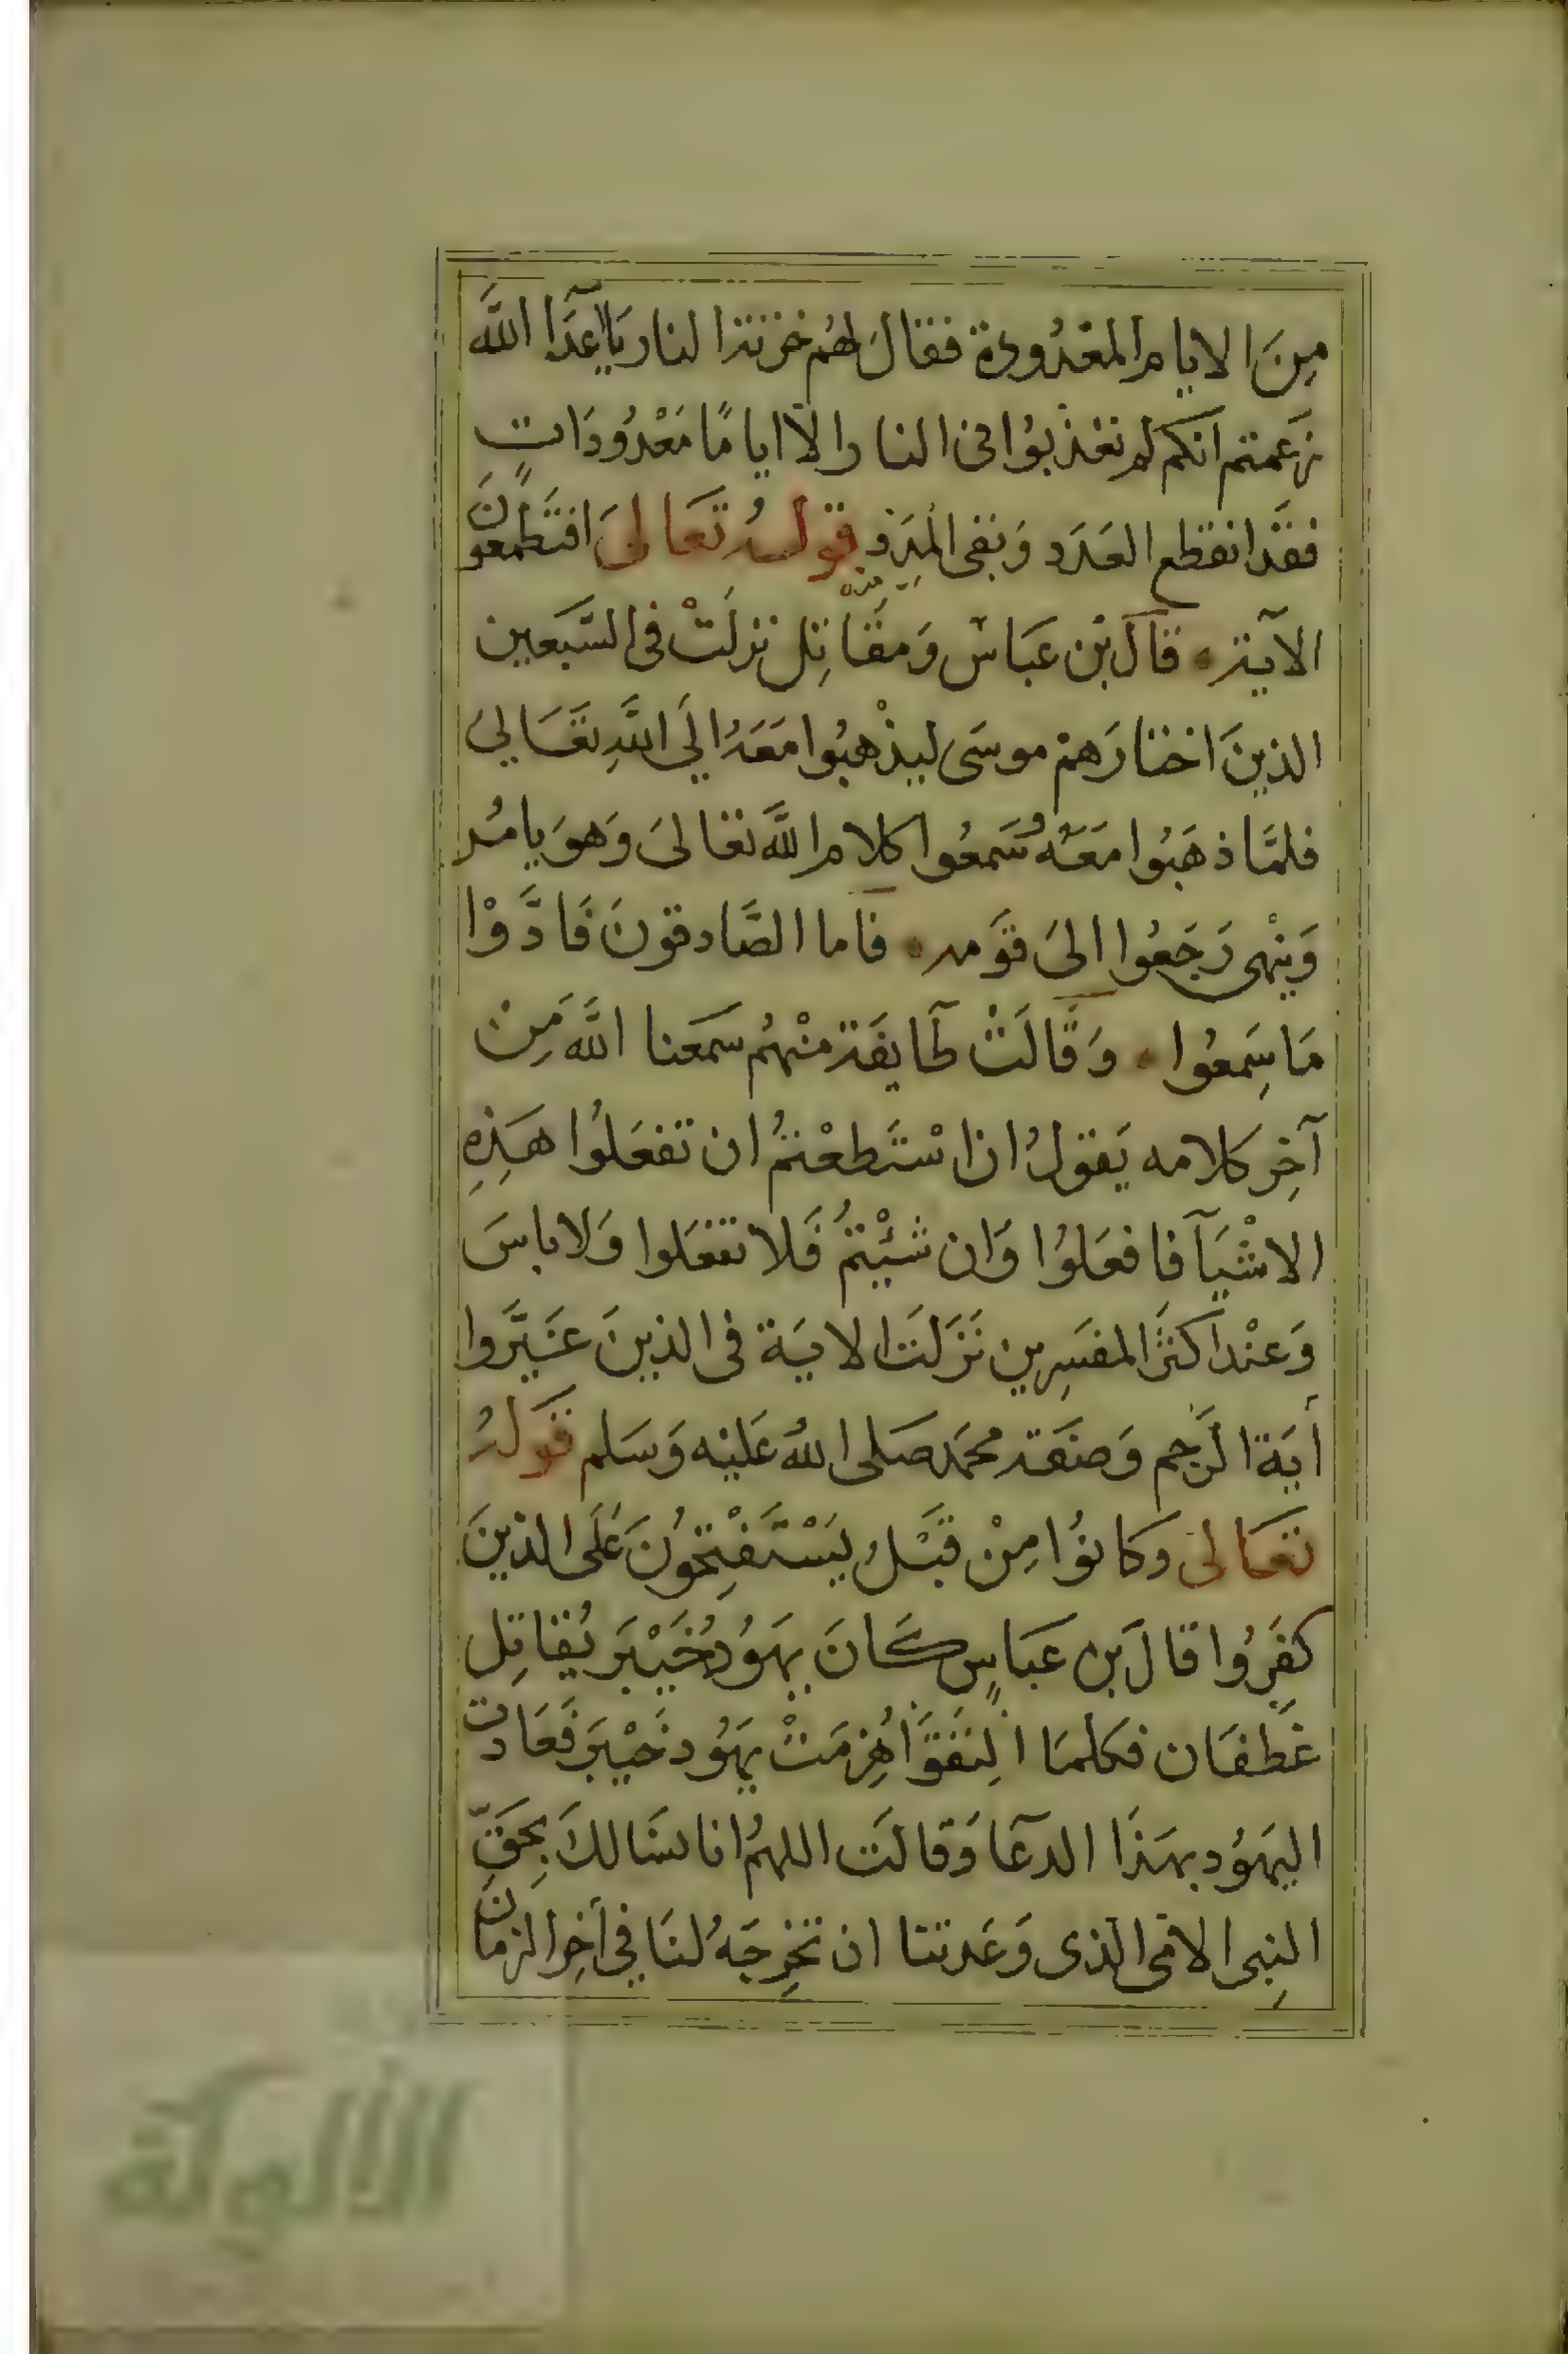 مِنَ الايام المعْدُودة فقالَ لهُم خزنة النار يَا اعدَآ اللَّه
زعَمتم انكم لم تعذبوُا فى النار الا اياما مَعْدُودَاتٍ
فقَد انقطع العَدَد وَبقى الاَبَد قولهُ تعَالىَ افتَطمَعُونَ
الآية قالَ بن عَبَاس وَمقَاتِل نزلَتْ فى السَّبَعين
الذينَ اختارَهم موسَى ليذْهبُوا مَعَهُ الَى اللَّهِ تعَالىَ
فلمَّا ذهَبُوا مَعَهُ سَمعُوا كلام اللَّه تعالىَ وَهوَ يامُر
وَينْهى رَجَعُوا الىَ قوَمه فاما الصَّادقونَ فَادَّوْا
مَا سِمَعُوا وَقَالَتْ طَايفَة منْهُم سمَعنا اللَّه مَِنْ
آخِر كلامه يَقولُ ان اسْتَطعْتمُ ان تفعَلوُا هَذِهِ
الاشْيَآ فافعَلوُا وَان شئْيتمُ فَلا تفعَلوا وَلا باسَ
وَعنْد اكثَر المفسِرين نَزَلَت الايَة فى الذينَ غَيَّروا
أيَة الرَجم وَصفَة محمَد صَلى اللهُ عَليْه وَسَلم قَولهُ
تعَالى وَكانوُا مِنْ قَبْلُ يَسْتَفْتِحُونَ عَلَى الذينَ
كفَرُوا قالَ بن عَبَاسٍ كَانَ يهَوُد خَيْبَر تُقاتِل
غَطَفَان فكلمَا التَقَوْا هُزِمَتْ يهَوُد خَيْبَر فَعَادت
اليهَوُد بهَذَا الدعَآ وَقالَت اللهمُ انا نسَالكَ بِحَقِّ
النِبى الامى الذى وَعَدتنا ان تخرِجَهُ لنَا فِي أخِر الزمان
الألوكة